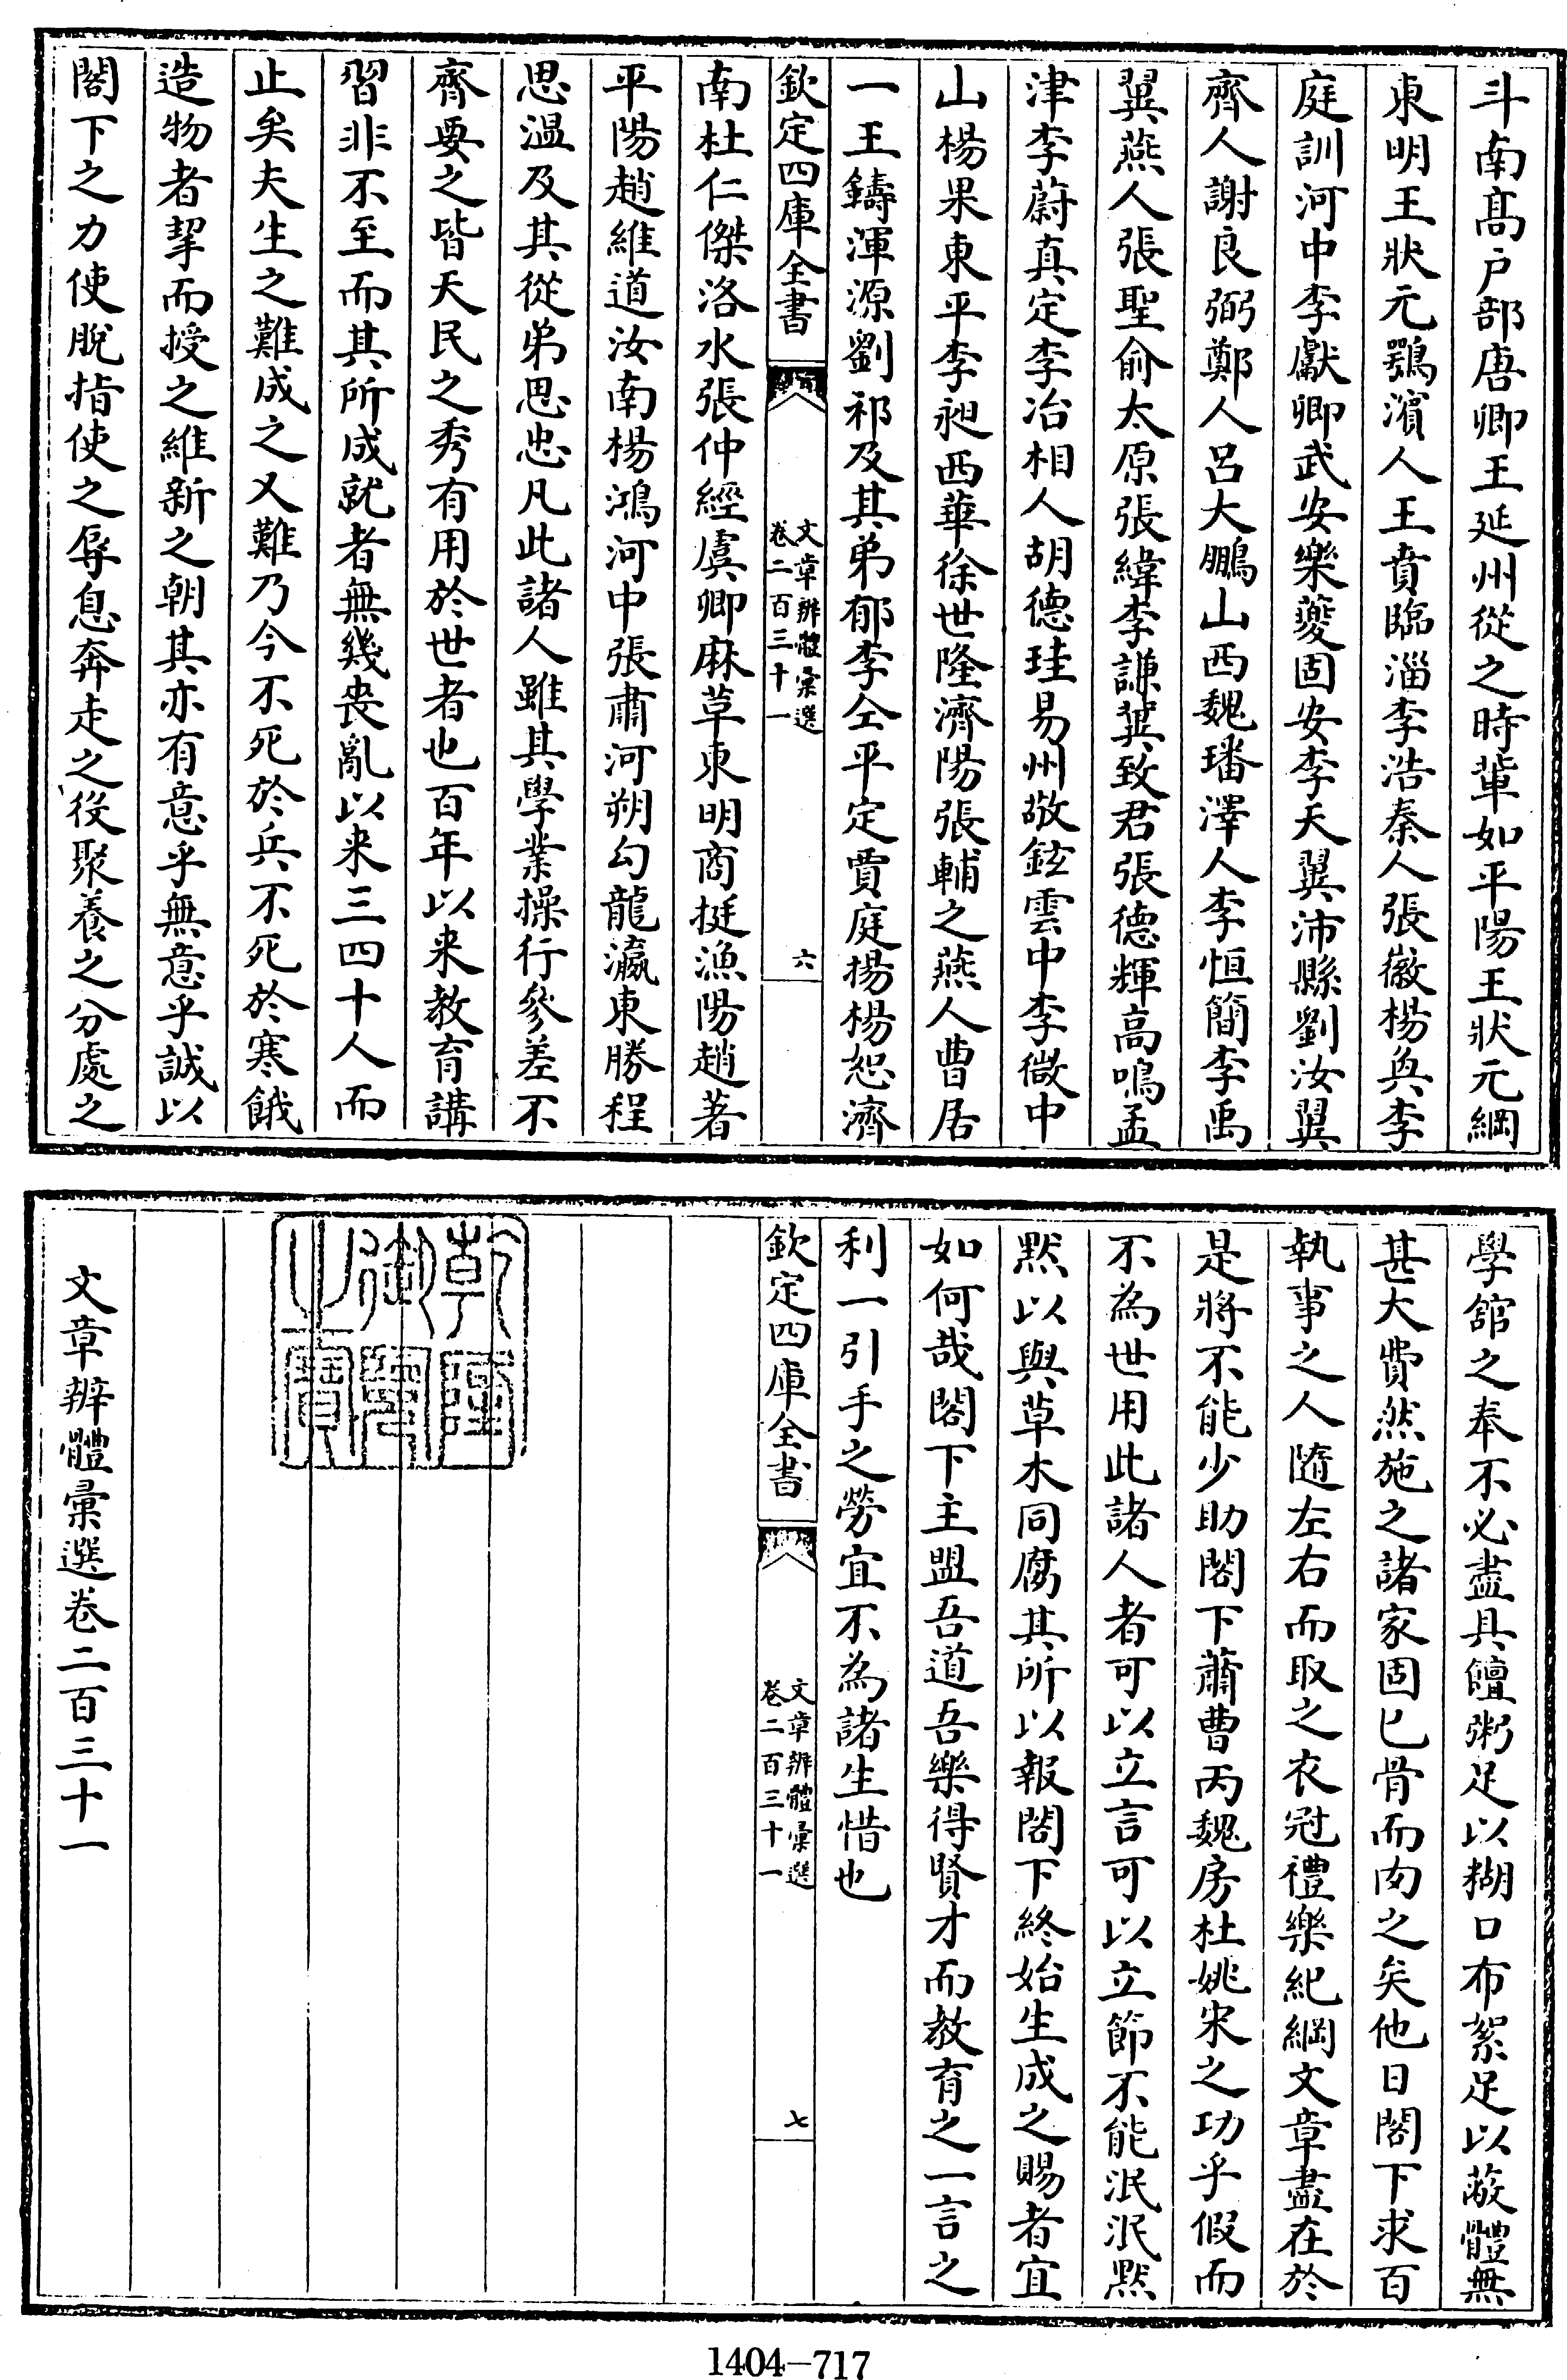 斗南髙户部唐卿王延州從之時輩如平陽王狀元綱
東明王狀元鶚濱人王賁臨淄李浩秦人張徽楊奐李
庭訓河中李獻卿武安樂夔固安李天翼沛縣劉汝翼
齊人謝良弼鄭人呂大鵬山西魏璠澤人李恒簡李禹
翼燕人張聖俞太原張緯李謙冀致君張德輝高鳴孟
津李蔚真定李冶相人胡德珪易州敬鉉雲中李微中
山楊果東平李昶西華徐世隆濟陽張輔之燕人曹居
一王鑄渾源劉祁及其弟郁李仝平定賈庭揚楊恕濟
欽定四庫全書
文章辨體彙選
卷二百三十一
六
南杜仁傑洛水張仲經虞卿麻革東明商挺漁陽趙著
平陽趙維道汝南楊鴻河中張肅河朔勾龍瀛東勝程
思温及其從弟思忠凡此諸人雖其學業操行參差不
齊要之皆天民之秀有用於世者也百年以来教育講
習非不至而其所成就者無幾喪亂以来三四十人而
止矣夫生之難成之又難乃今不死於兵不死於寒餓
造物者挈而授之維新之朝其亦有意乎無意乎誠以
閣下之力使脫指使之辱息奔走之役聚養之分處之
學舘之奉不必盡具饘粥足以糊口布絮足以蔽體無
甚大費然施之諸家固已骨而肉之矣他日閣下求百
執事之人隨左右而取之衣冠禮樂紀綱文章盡在於
是將不能少助閣下蕭曹丙魏房杜姚宋之功乎假而
不為世用此諸人者可以立言可以立節不能泯泯默
默以與草木同腐其所以報閣下終始生成之賜者宜
如何哉閣下主盟吾道吾樂得賢才而教育之一言之
利一引手之勞宜不為諸生惜也
欽定四庫全書
文章辨體彙選
卷二百三十一
七
乾隆
御覽
之寶
文章辨體彙選卷二百三十一
1404-717